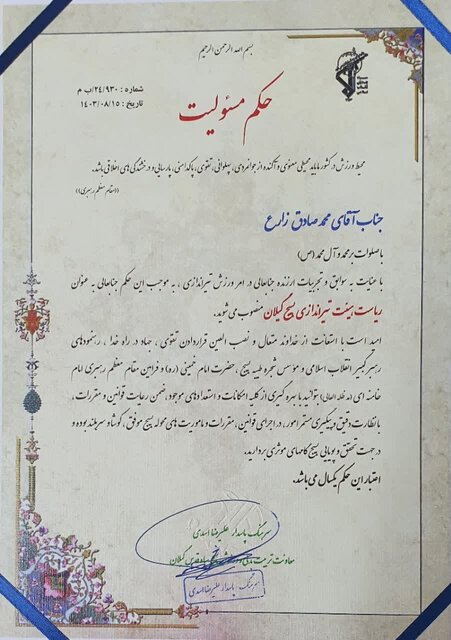 بسم الله الرحمن الرحیم
شماره : ۲۴/۹۳۰/ب م
تاریخ : ۱۴۰۳/۰۸/۱۵
حکم مسئولیت
محیط ورزش در کشور ما باید محیطی معنوی و آکنده از جوانمردی، پهلوانی، تقوی، پاکدامنی، پارسایی و درخشندگی های اخلاقی باشد.
((مقام معظم رهبری))
جناب آقای محمد صادق زارع
با صلوات بر محمد و آل محمد (ص)
با عنایت به سوابق و تجربیات ارزنده جنابعالی در امر ورزش تیراندازی ، به موجب این حکم جنابعالی به عنوان
ریاست هیئت تیراندازی بسیج گیلان منصوب می شوید.
امید است با استعانت از خداوند متعال و نصب العین قراردادن تقوی ، جهاد در راه خدا ، رهنمودهای
رهبر کبیر انقلاب اسلامی و موسس شجره طیبه بسیج ، حضرت امام خمینی (ره) و فرامین مقام معظم رهبری امام
خامنه ای (مد ظله العالی) بتوانید با بهره گیری از کلیه امکانات و استعدادهای موجود، ضمن رعایت قوانین و مقررات ،
با نظارت دقیق و پیگیری مستمر امور، در اجرای قوانین، مقررات و ماموریت های محوله بسیج موفق ، کوشا و سربلند بوده و
در جهت تحقق و پویایی بسیج گامهای موثری بردارید.
اعتبار این حکم یکسال می باشد.
سرهنگ پاسدار علیرضا اسدی
معاونت تربیت بدنی و سپاه قدس گیلان
سرهنگ پاسدار علیرضا اسدی